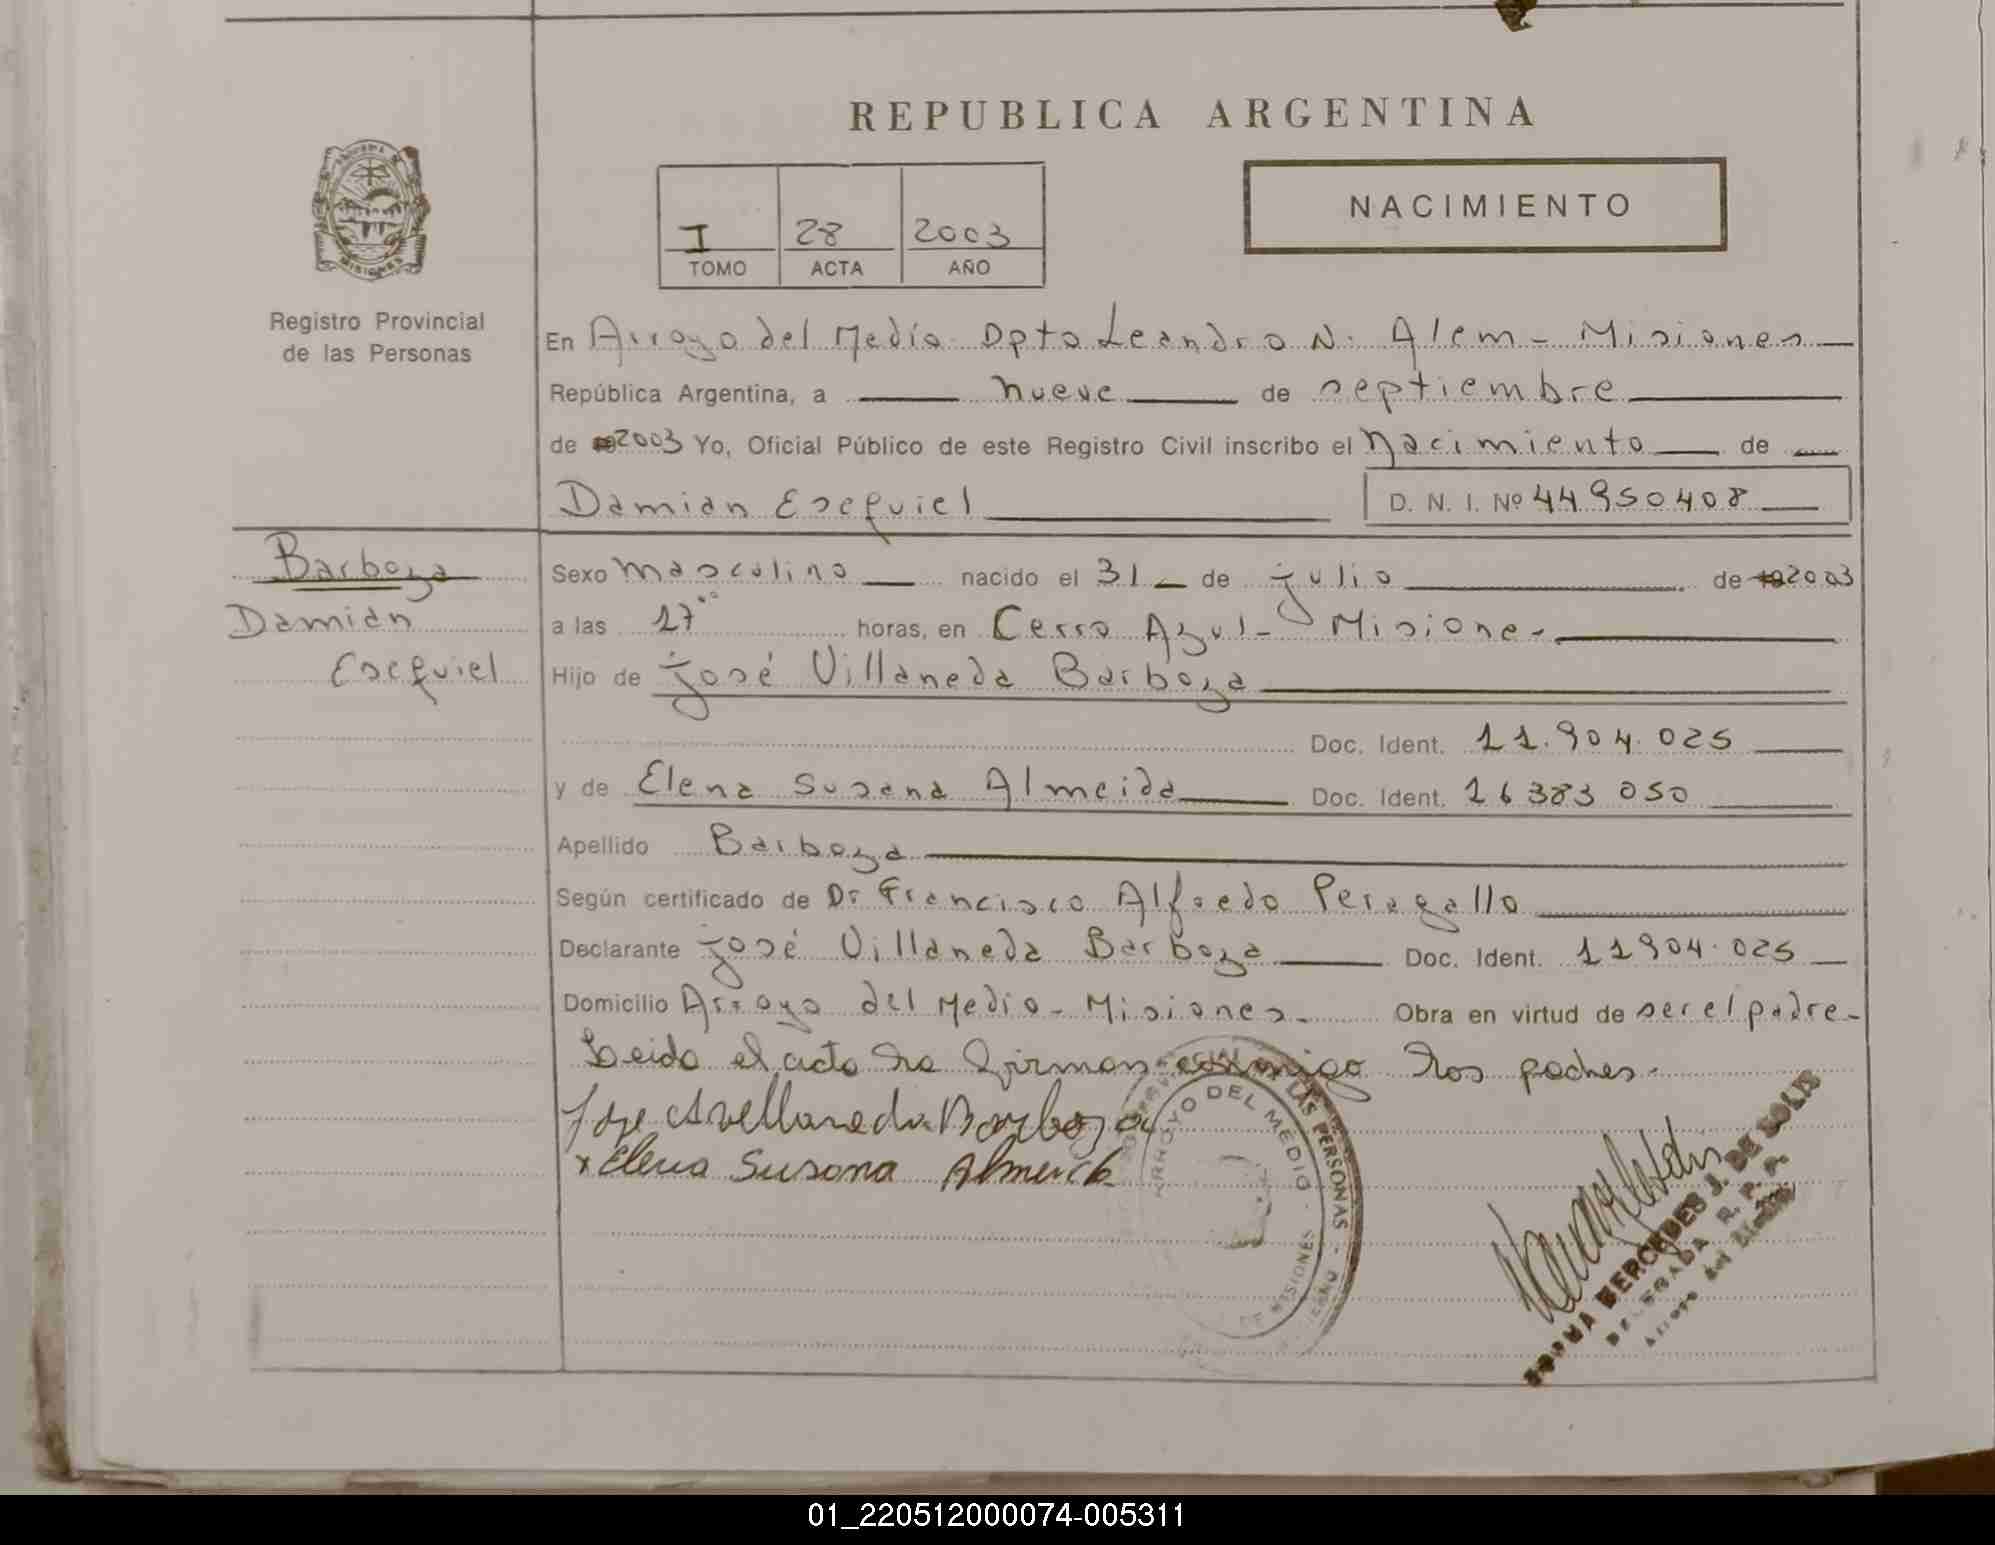 REPUBLICA ARGENTINA
NACIMIENTO
I 28 2003
TOMO ACTA AÑO
MISIONES
Registro Provincial
de las Personas
En Arroyo del Medio Dpto Leandro N. Alem - Misiones
República Argentina, a nueve de septiembre
de 2003 Yo, Oficial Público de este Registro Civil inscribo el Nacimiento de
Damian Esequiel D. N. I. Nº 44950408
Barboza
Damian
Esequiel
Sexo masculino nacido el 31 de julio de 2003
a las 17°° horas, en Cerro Azul - Misiones
Hijo de José Villaneda Barboza
Doc. Ident. 11.904.025
y de Elena Susana Almeida Doc. Ident. 16383050
Apellido Barboza
Según certificado de Dr Francisco Alfredo Peragallo
Declarante José Villaneda Barboza Doc. Ident. 11904.025
Domicilio Arroyo del Medio - Misiones - Obra en virtud de ser el padre -
Leida el acta la firman conmigo los padres.
Jose Avellaneda Barboza
x Elena Susana Almeida
ARROYO DEL MEDIO - DE MISIONES
LAS PERSONAS
NORMA MERCEDES J. DE SOLIS
DELEGADA R. P. P.
Arroyo del Medio
01_220512000074-005311